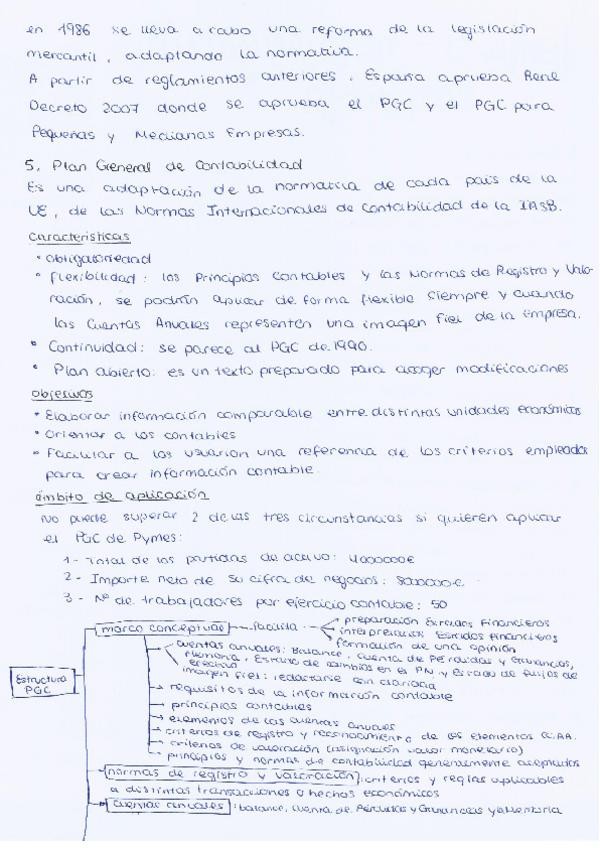 en 1986 se lleva a cabo una reforma de la legislación
mercantil, adaptando la normativa.
A partir de reglamentos anteriores, España aprueba Real
Decreto 2007 donde se aprueba el PGC y el PGC para
Pequeñas y Medianas Empresas.
5. Plan General de Contabilidad
Es una adaptación de la normativa de cada país de la
UE, de las Normas Internacionales de Contabilidad de la IASB.
Características
• Obligatoriedad
• Flexibilidad: los Principios Contables y las Normas de Registro y Valo-
ración, se podrán aplicar de forma flexible siempre y cuando
las Cuentas Anuales representen una imagen fiel de la Empresa.
• Continuidad: se parece al PGC de 1990.
• Plan abierto: es un texto preparado para acoger modificaciones
Objetivos
• Elaborar información comparable entre distintas unidades económicas
• Orientar a los contables
• Facilitar a los usuarios una referencia de los criterios empleados
para crear información contable.
ámbito de aplicación
No puede superar 2 de las tres circunstancias si quieren aplicar
el PGC de Pymes:
1- Total de las partidas de activo: 4000000€
2- Importe neto de su cifra de negocios: 8000000€.
3- Nº de trabajadores por ejercicio contable: 50
Estructura PGC
marco conceptual — facilita
preparación Estados Financieros
interpretación Estados Financieros
formación de una opinión
cuentas anuales: Balance, cuenta de Pérdidas y Ganancias,
memoria, Estado de cambios en el PN y Estado de flujos de
efectivo
imagen fiel: redactarse con claridad
→ requisitos de la información contable
→ principios contables
→ elementos de las cuentas anuales
→ criterios de registro y reconocimiento de los elementos CC.AA.
→ criterios de valoración (asignación valor monetario)
→ principios y normas de contabilidad generalmente aceptados
normas de registro y valoración: criterios y reglas aplicables
a distintas transacciones o hechos económicos
cuentas anuales: balance, cuenta de Pérdidas y Ganancias y Memoria